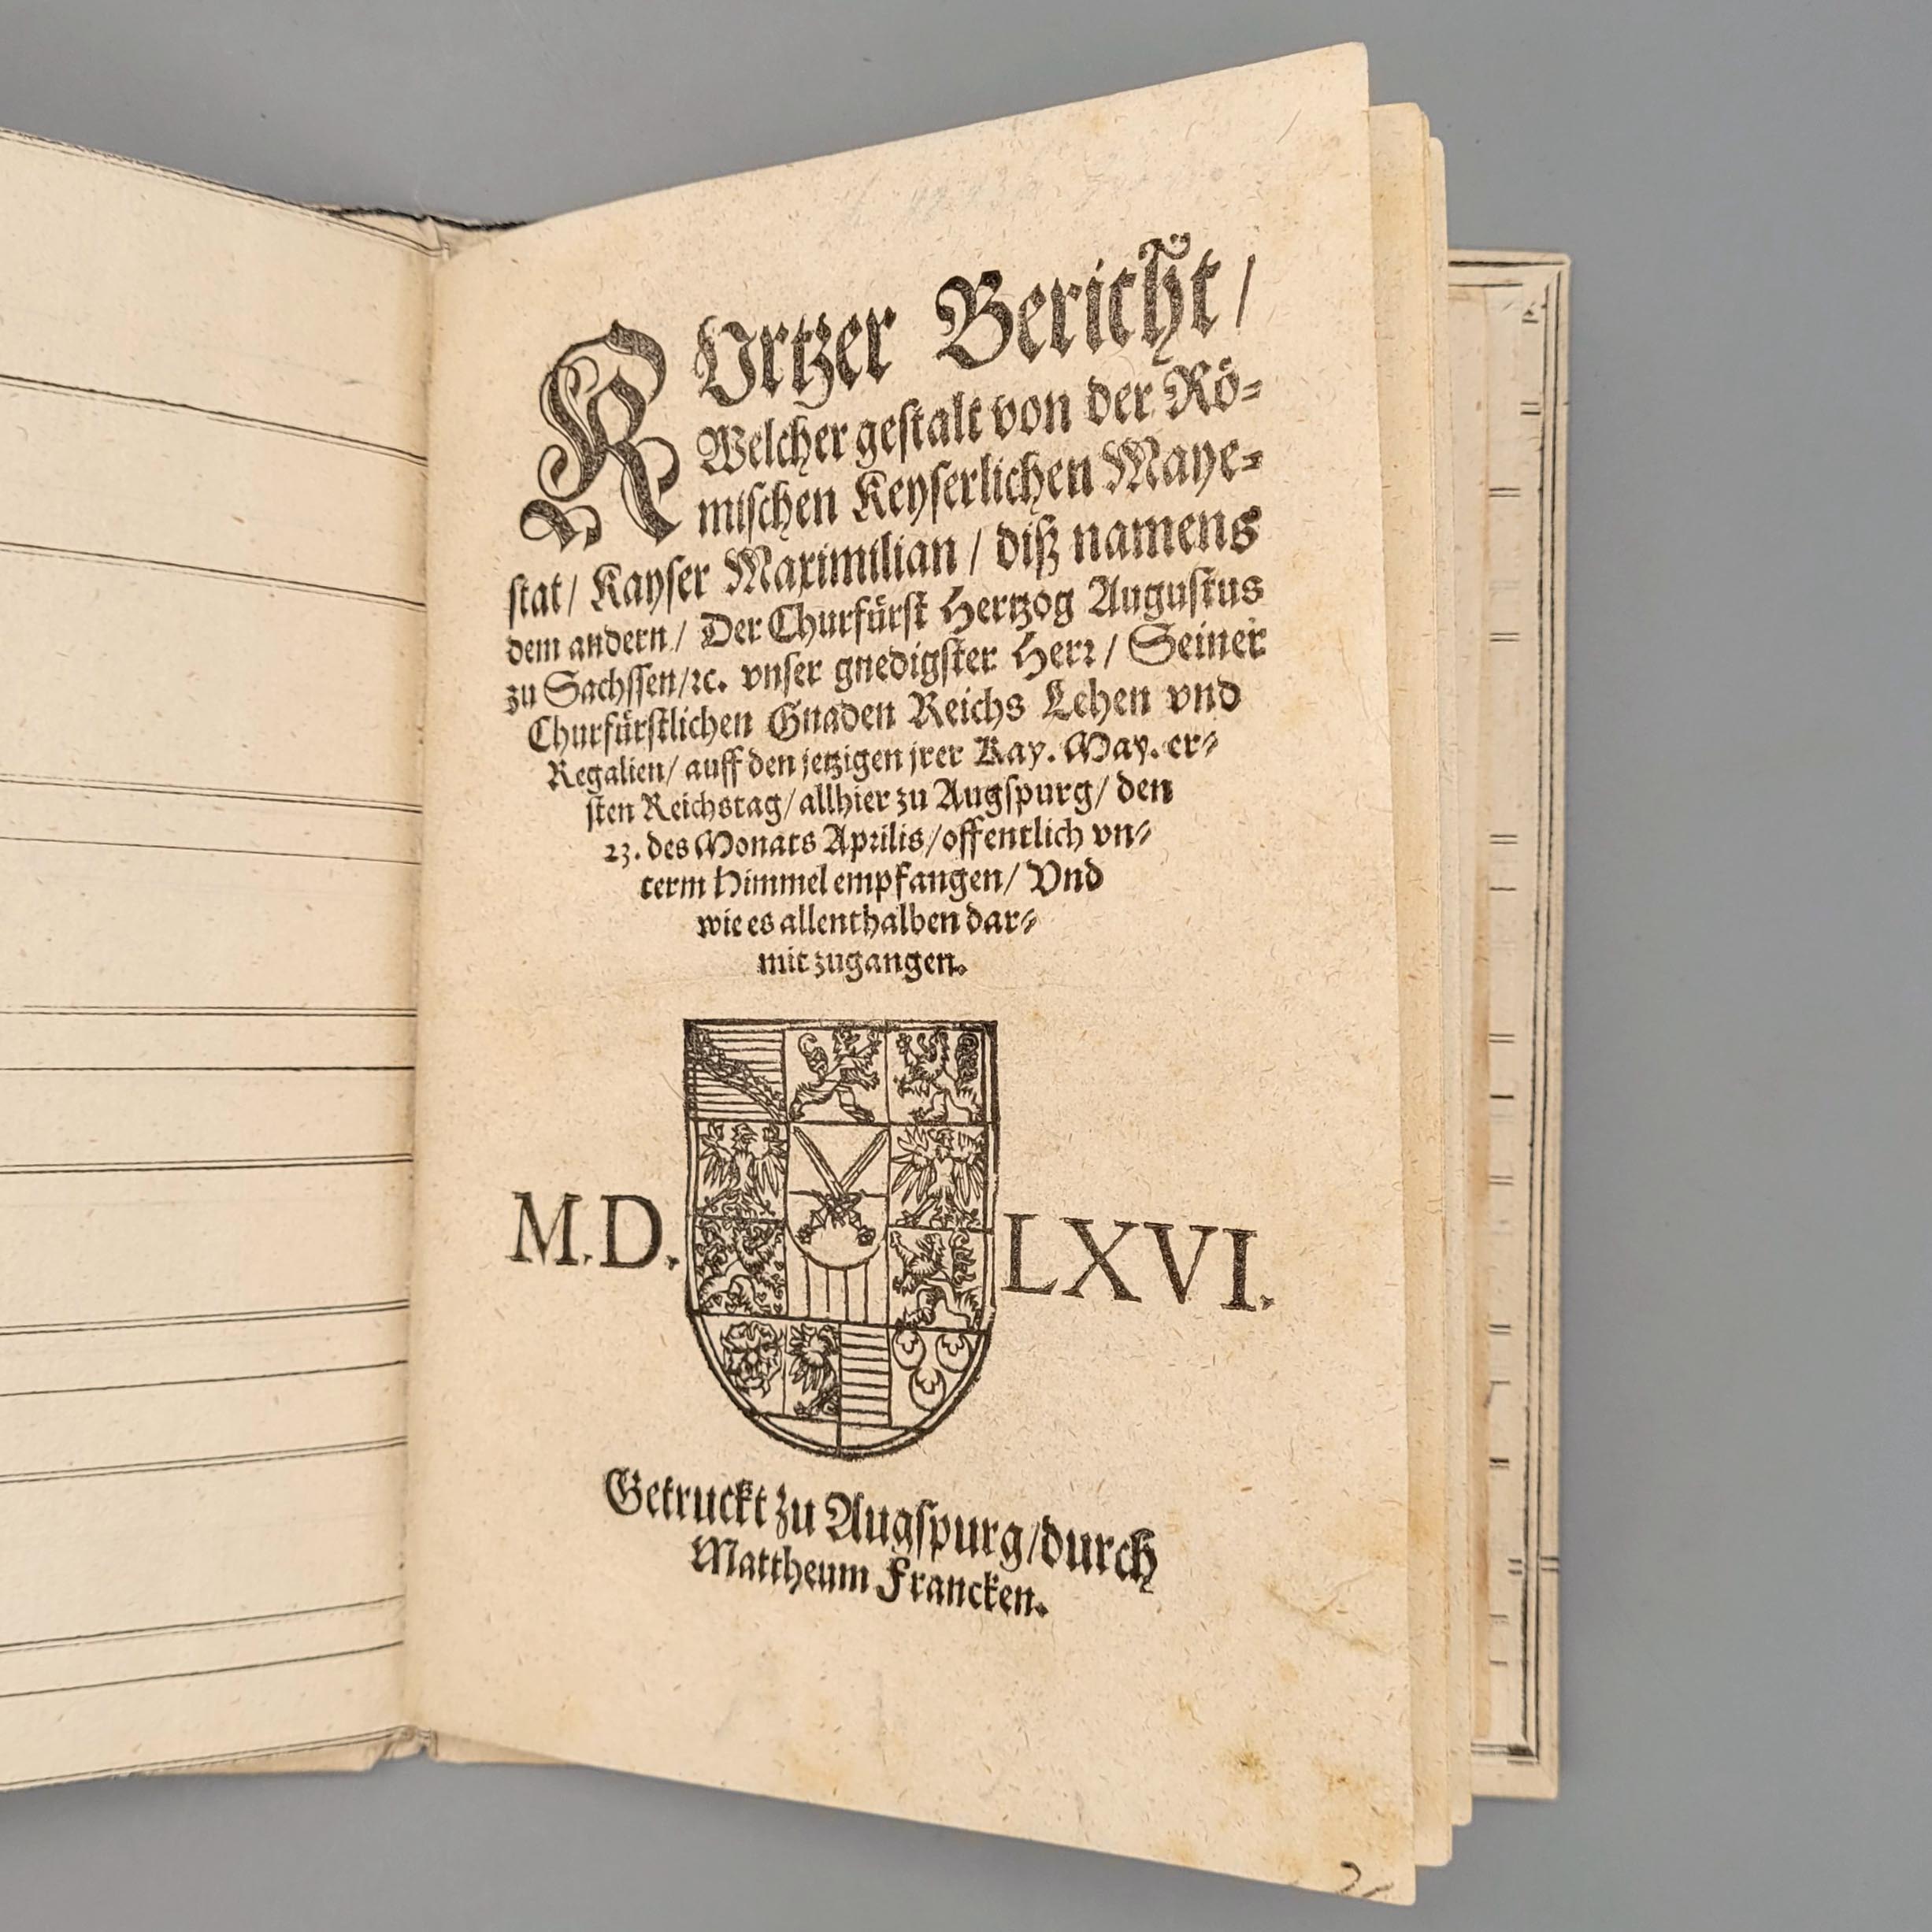 KUrtzer Bericht /
Welcher gestalt von der Rö=
mischen Keyserlichen Maye=
stat / Kayser Maximilian / diß namens
dem andern / Der Churfürst Hertzog Augustus
zu Sachssen / ꝛc. vnser gnedigster Herr / Seiner
Churfürstlichen Gnaden Reichs Lehen vnd
Regalien / auff den jetzigen jrer Kay. May. er=
sten Reichstag / allhier zu Augspurg / den
23. des Monats Aprilis / offentlich vn=
term Himmel empfangen / Vnd
wie es allenthalben dar=
mit zugangen.
M.D. LXVI.
Getruckt zu Augspurg / durch
Mattheum Francken.